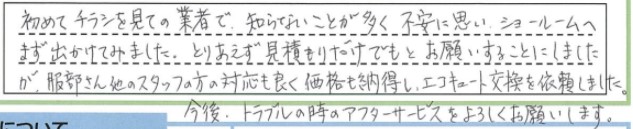 初めてチラシを見ての業者で、知らないことが多く不安に思い、ショールームへ
まず出かけてみました。とりあえず見積もりだけでもとお願いすることにしました
が、服部さん他のスタッフの方の対応も良く価格も納得し、エコキュート交換を依頼しました。
今後、トラブルの時のアフターサービスをよろしくお願いします。
について